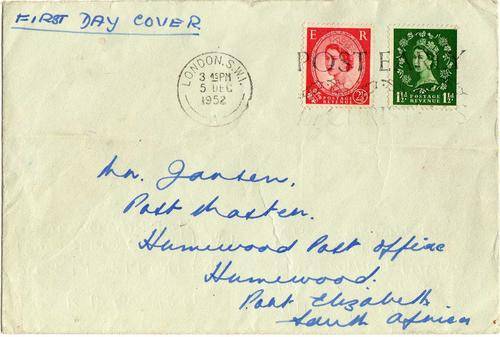 FIRST DAY COVER
LONDON. S.W.1.
3 45 PM
5 DEC
1952
POST E
E R
POSTAGE
REVENUE
2½d
POSTAGE
REVENUE
1½d 1½d
Mr. Jansen,
Post Master.
Humewood Post Office
Humewood.
Port Elizabeth
South Africa